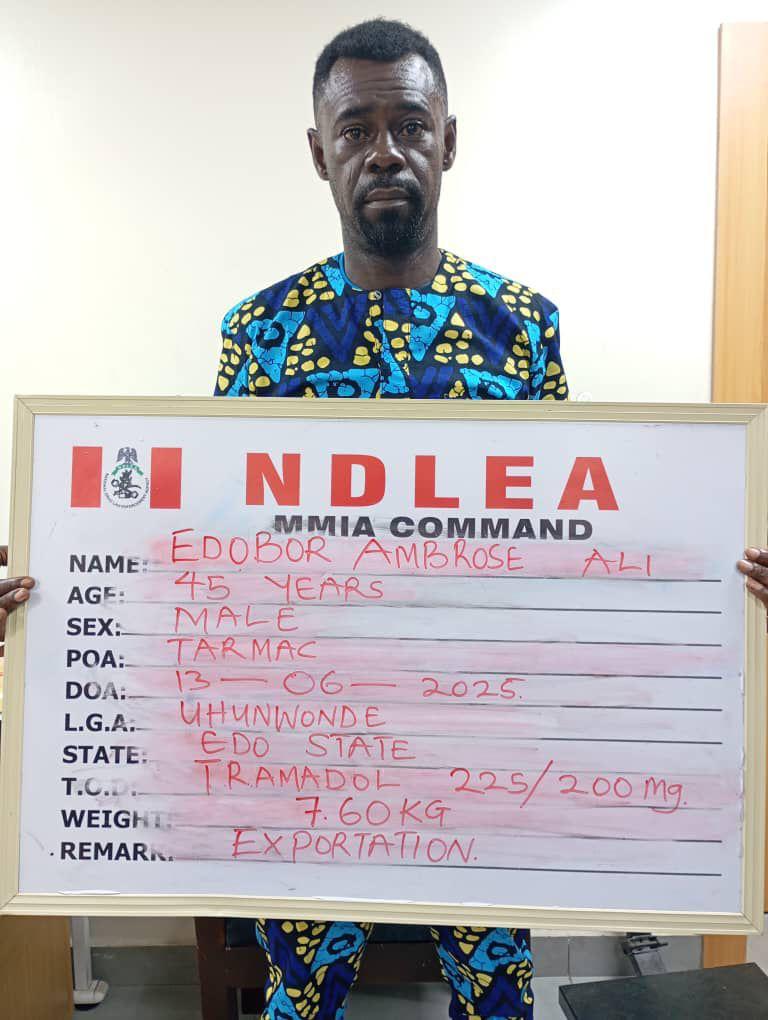 NDLEA
MMIA COMMAND
NAME: EDOBOR AMBROSE ALI
AGE: 45 YEARS
SEX: MALE
POA: TARMAC
DOA: 13 — 06 — 2025.
L.G.A: UHUNWONDE
STATE: EDO STATE
T.O.D: TRAMADOL 225/200mg.
WEIGHT: 7.60KG
REMARK: EXPORTATION.